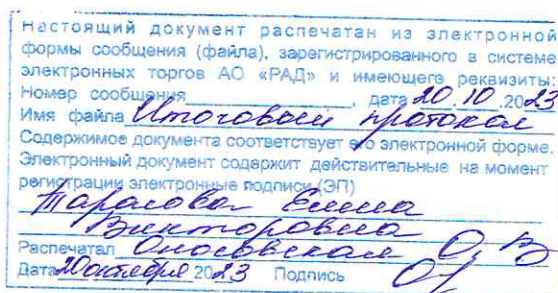 Настоящий документ распечатан из электронной
формы сообщения (файла), зарегистрированного в системе
электронных торгов АО «РАД» и имеющего реквизиты:
Номер сообщения____________, дата 20.10.2023
Имя файла Итоговый протокол
Содержимое документа соответствует его электронной форме.
Электронный документ содержит действительные на момент
регистрации электронные подписи (ЭП)
Тарасова Елена
Викторовна
Распечатал О.В
Дата 20 октября 2023 Подпись